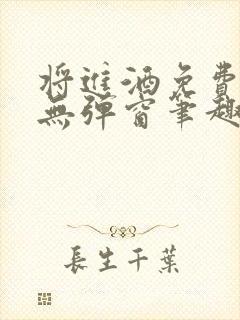 將進酒免費
無彈窗筆趣
長生千葉